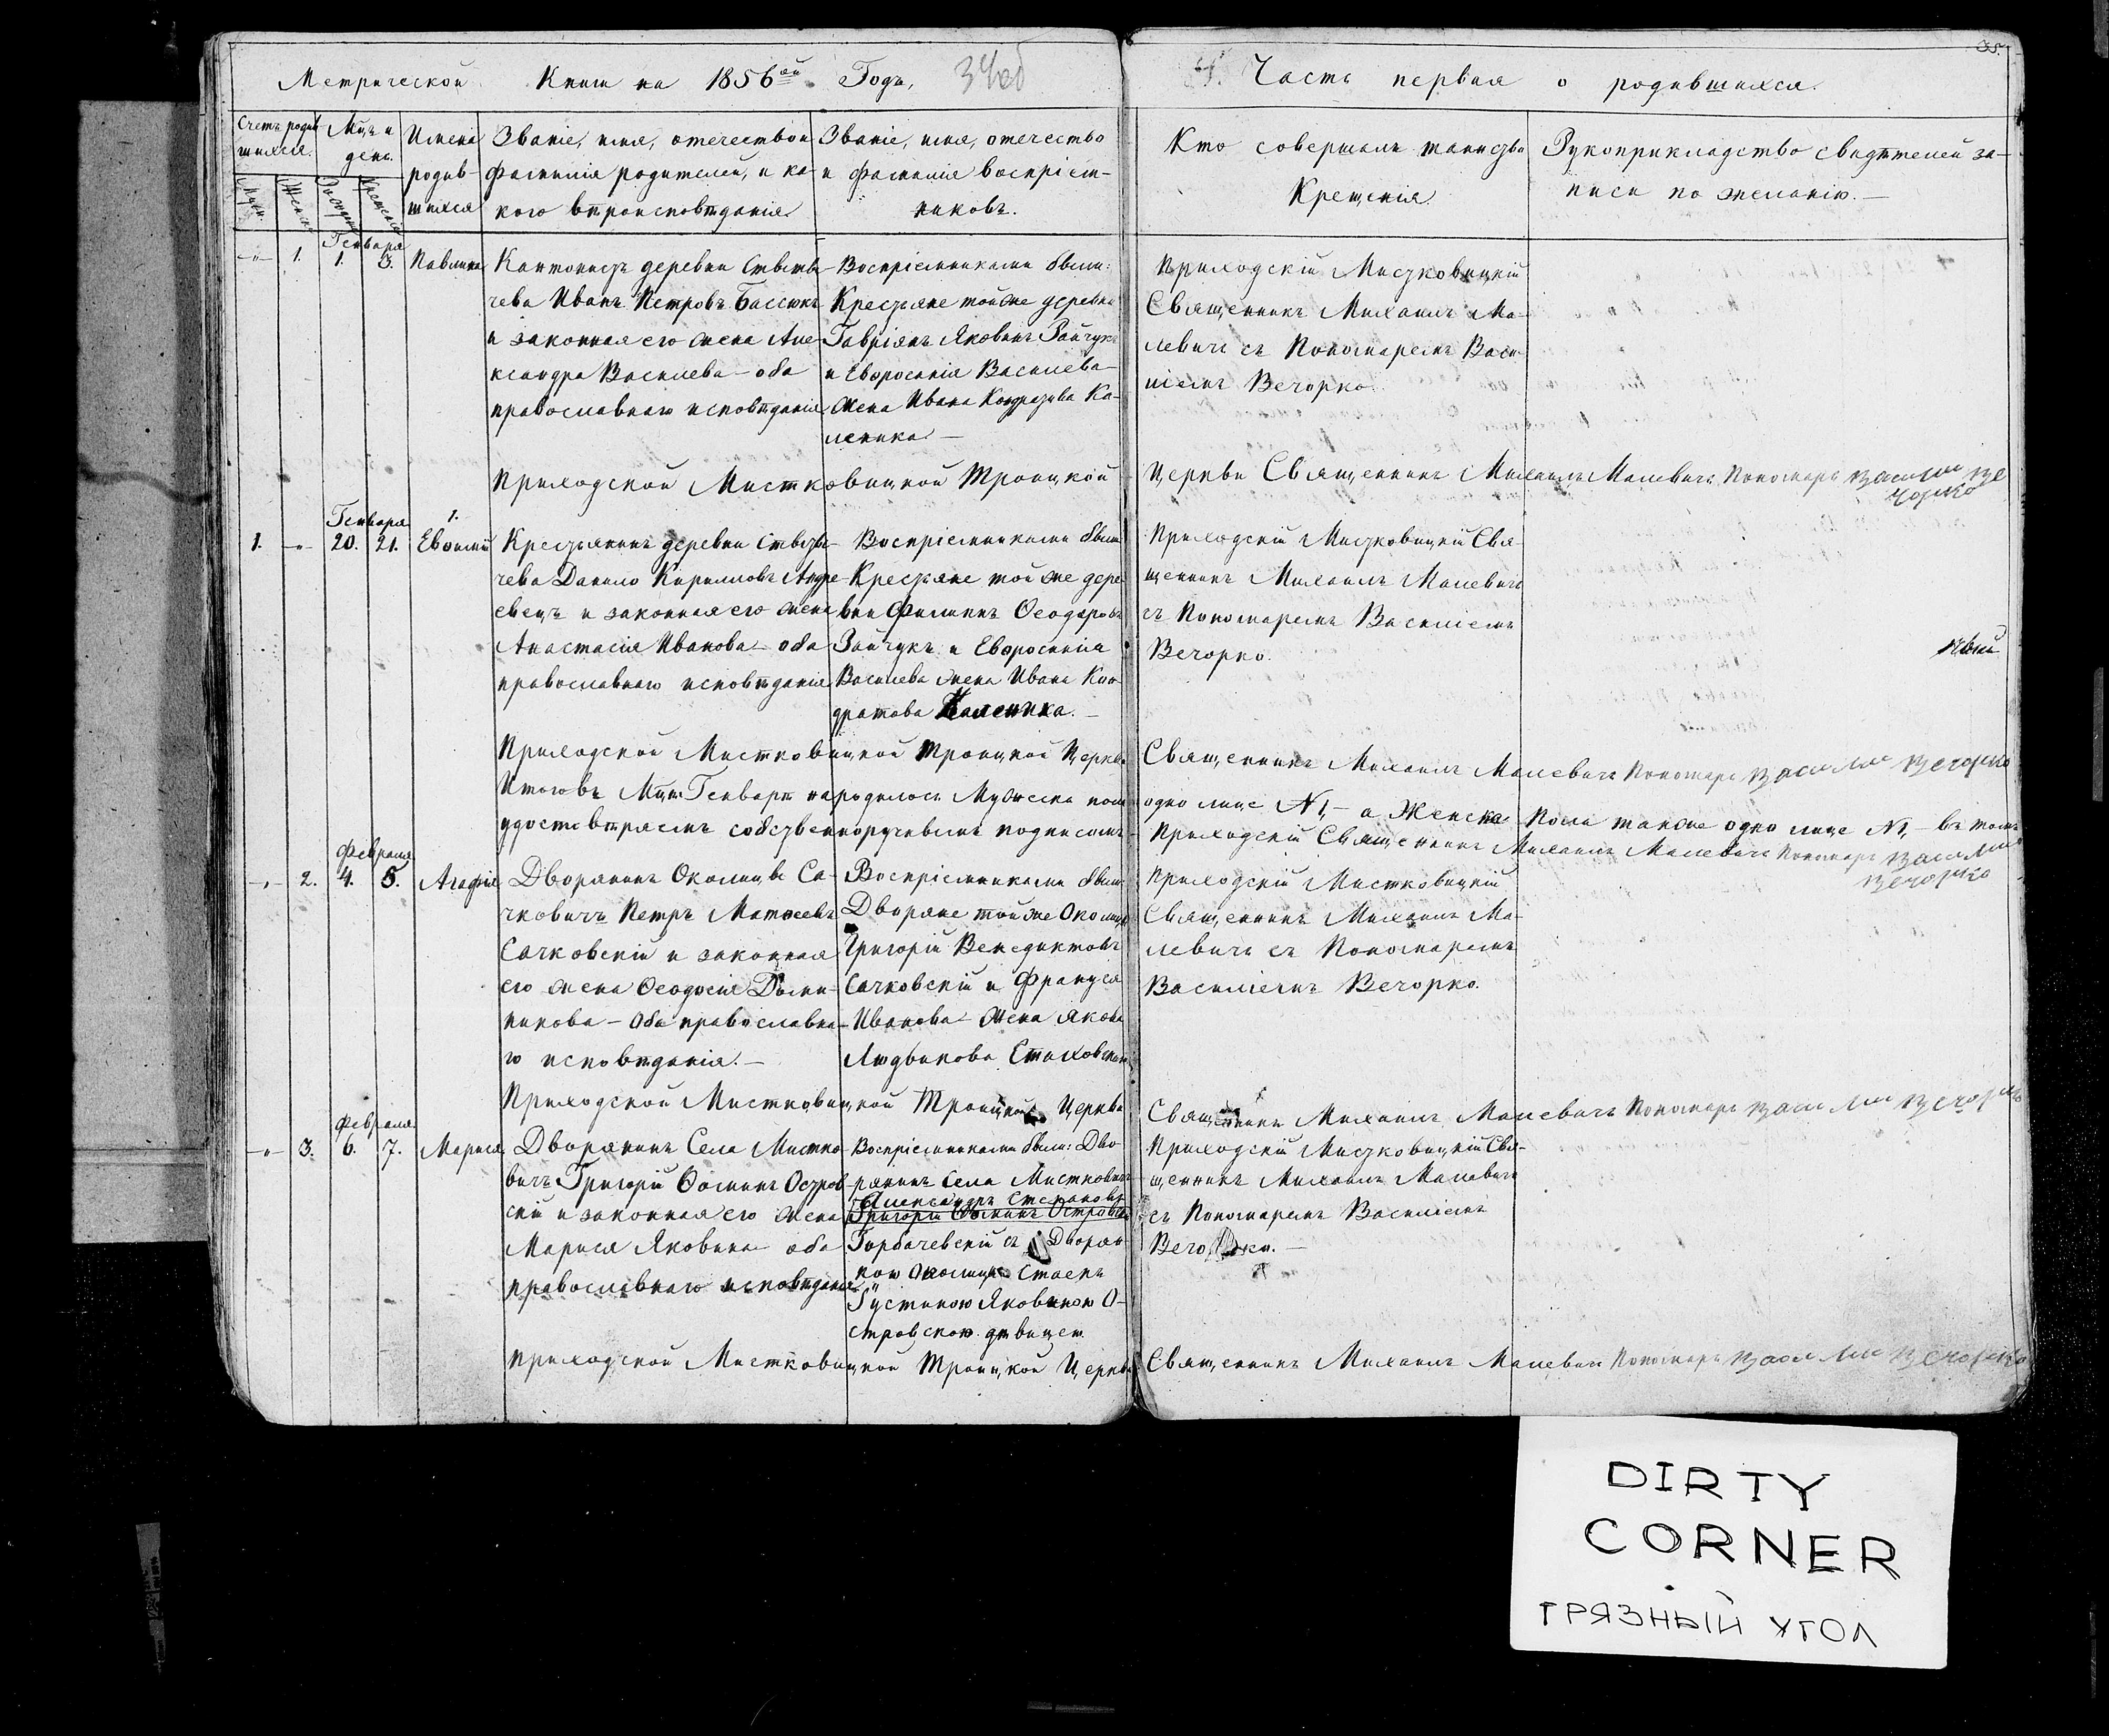 Метрической Книги на 1856ой Годъ,
34об
Часть первая о родившихся.
35.
Счетъ родив
шихся.
Мцъ и
день.
Имена
родив-
шихся
Званіе, имя, отечество и
фамилія родителей, и ка-
кого вѣроисповѣданія
Званіе, имя, отечество
и фамилія воспріем-
никовъ.
Кто совершалъ таинство
Крещенія
Рукоприкладство свидѣтелей за-
писи по желанію.
Генваря
1. 1. 3. Павлина
Кантонистъ деревни
чева Иванъ Петровъ
и законная его жена Але-
ксандра Васильева – оба
православнаго исповѣданія
Воспріемниками были:
Крестьяне той же деревни
Гавріилъ Яковинъ Зайчукъ
и Евфросинія Васильева
жена Ивана Кондратова Ка-
леника –
Приходскій Мистковицкій
Священникъ Михаилъ Ма-
левичъ съ Пономаремъ Васи-
ліемъ Вечорко
Приходской Мистковицкой Троицкой Церкви Священникъ Михаилъ Малевичъ Пономарь Василій Ве
чорко
Генваря 1.
1. 20. 21. Евфимій
Крестьянинъ деревни
чева Данило Кирилловъ Андре
евецъ и законная его жена
Анастасія Иванова – оба
православнаго исповѣданія
Воспріемниками были
Крестьяне той же дере
вни Филиппъ Ѳеодоровъ
Зайчукъ и Евфросинія
Васильева жена Ивана Кон
дратова Каленика. –
Приходскій Мистковицкій Свя-
щенникъ Михаилъ Малевичъ
съ Пономаремъ Василіемъ
Вечорко.
Приходской Мистковицкой Троицкой Церкви Священникъ Михаилъ Малевичъ Пономарь Василій Вечорко
Итого въ Мцѣ Генварѣ народилось Мужеска пола одно лице №1, – а Женска Пола также одно лице №1, – въ томъ
удостовѣряемъ собственноручнымъ подписомъ – Приходскій Священникъ Михаилъ Малевичъ Пономарь Василій
Вечорко
Февраля
2. 4. 5. Агафія
Дворянинъ Околицы Са-
чковичъ Петръ Матѳеевъ
Сачковскій и законная
его жена Ѳеодосія Доми-
никова – Оба православна-
го исповѣданія. –
Воспріемниками были
Дворяне той же Околицы
Григорій Венедиктовъ
Сачковскій и Франуся
Иванова – Жена Якова
Людвикова
Приходскій Мистковицкій
Священникъ Михаилъ Ма-
левичъ съ Пономаремъ
Василіемъ Вечорко.
Приходской Мистковицкой Троицкой Церкви Священникъ Михаилъ Малевичъ Пономарь Василій Вечорко
Февраля
3. 6. 7. Марися
Дворянинъ Села Мистко
вичъ Григорій Ѳоминъ Остров
скій и законная его жена
Марися Яковина – оба
православнаго исповѣданія
Воспріемниками были: Дво-
рянинъ Села Мистковичъ
Александръ Степановъ
Григорій Ѳоминъ Островскій
Горбачевскій съ Дворян-
кою Околицы Стаекъ
Густиною Яковиною О-
стровскою дѣвицею
Приходскій Мистковицкій Свя-
щенникъ Михаилъ Малевичъ
съ Пономаремъ Василіемъ
Вечорко. –
Приходской Мистковицкой Троицкой Церкви Священникъ Михаилъ Малевичъ Пономарь Василій Вечорко
DIRTY
CORNER
ГРЯЗНЫЙ УГОЛ